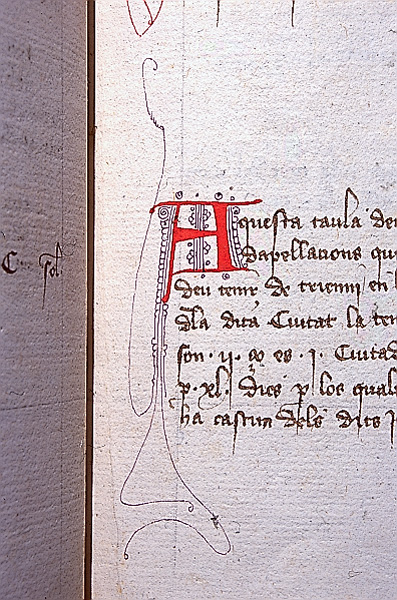 C sol
Aquesta taula de
dapellacions qu
deu tenir de trienni en l
dla dita Ciutat la te
son · ij · ço es · j · Ciuta
p · xl · dies p los qual
ha cascun dels dits